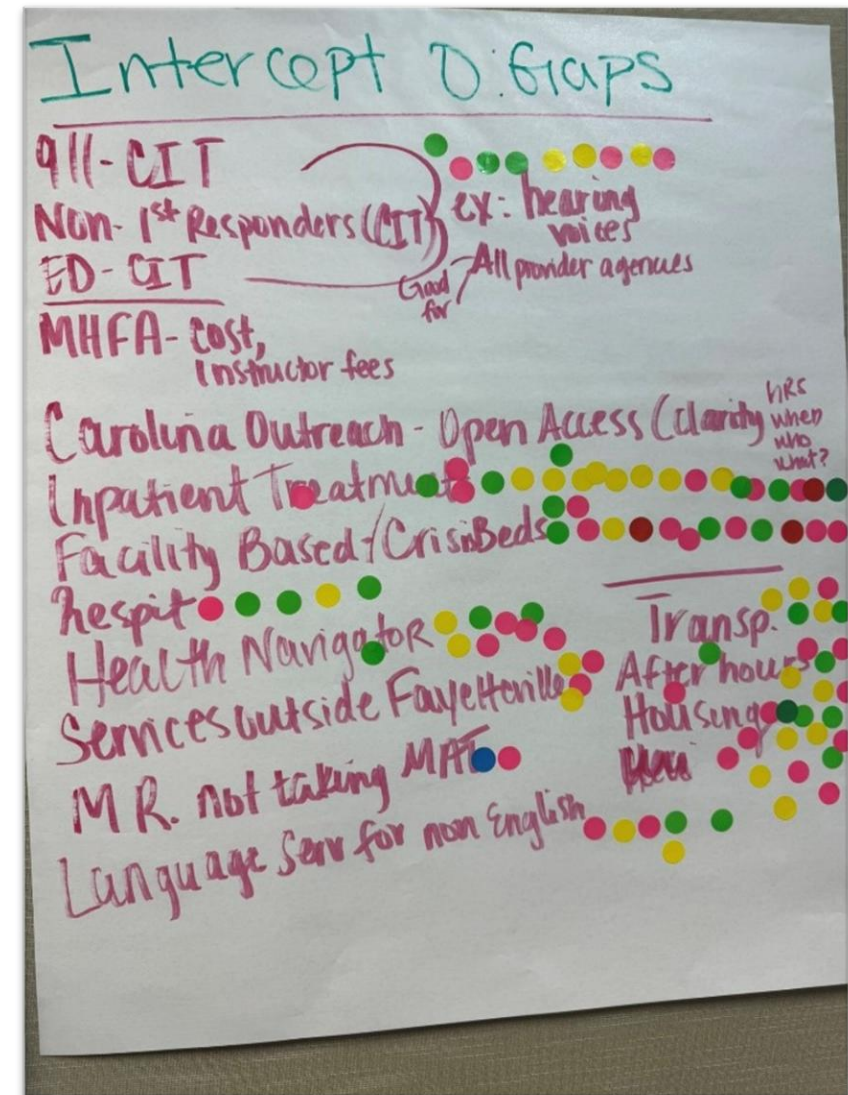 Intercept 0: Gaps
911-CIT
Non-1st Responders (CIT)
ED-CIT
ex: hearing
voices
Good
for
All provider agencies
MHFA- cost,
Instructor fees
Carolina Outreach - Open Access (clarity
HRS
when
who
what?
Inpatient Treatment
Facility Based/Crisis Beds
Respit
Health Navigator
Services outside Fayetteville
MR. not taking MAT
Language Serv for non English
Transp.
After hours
Housing